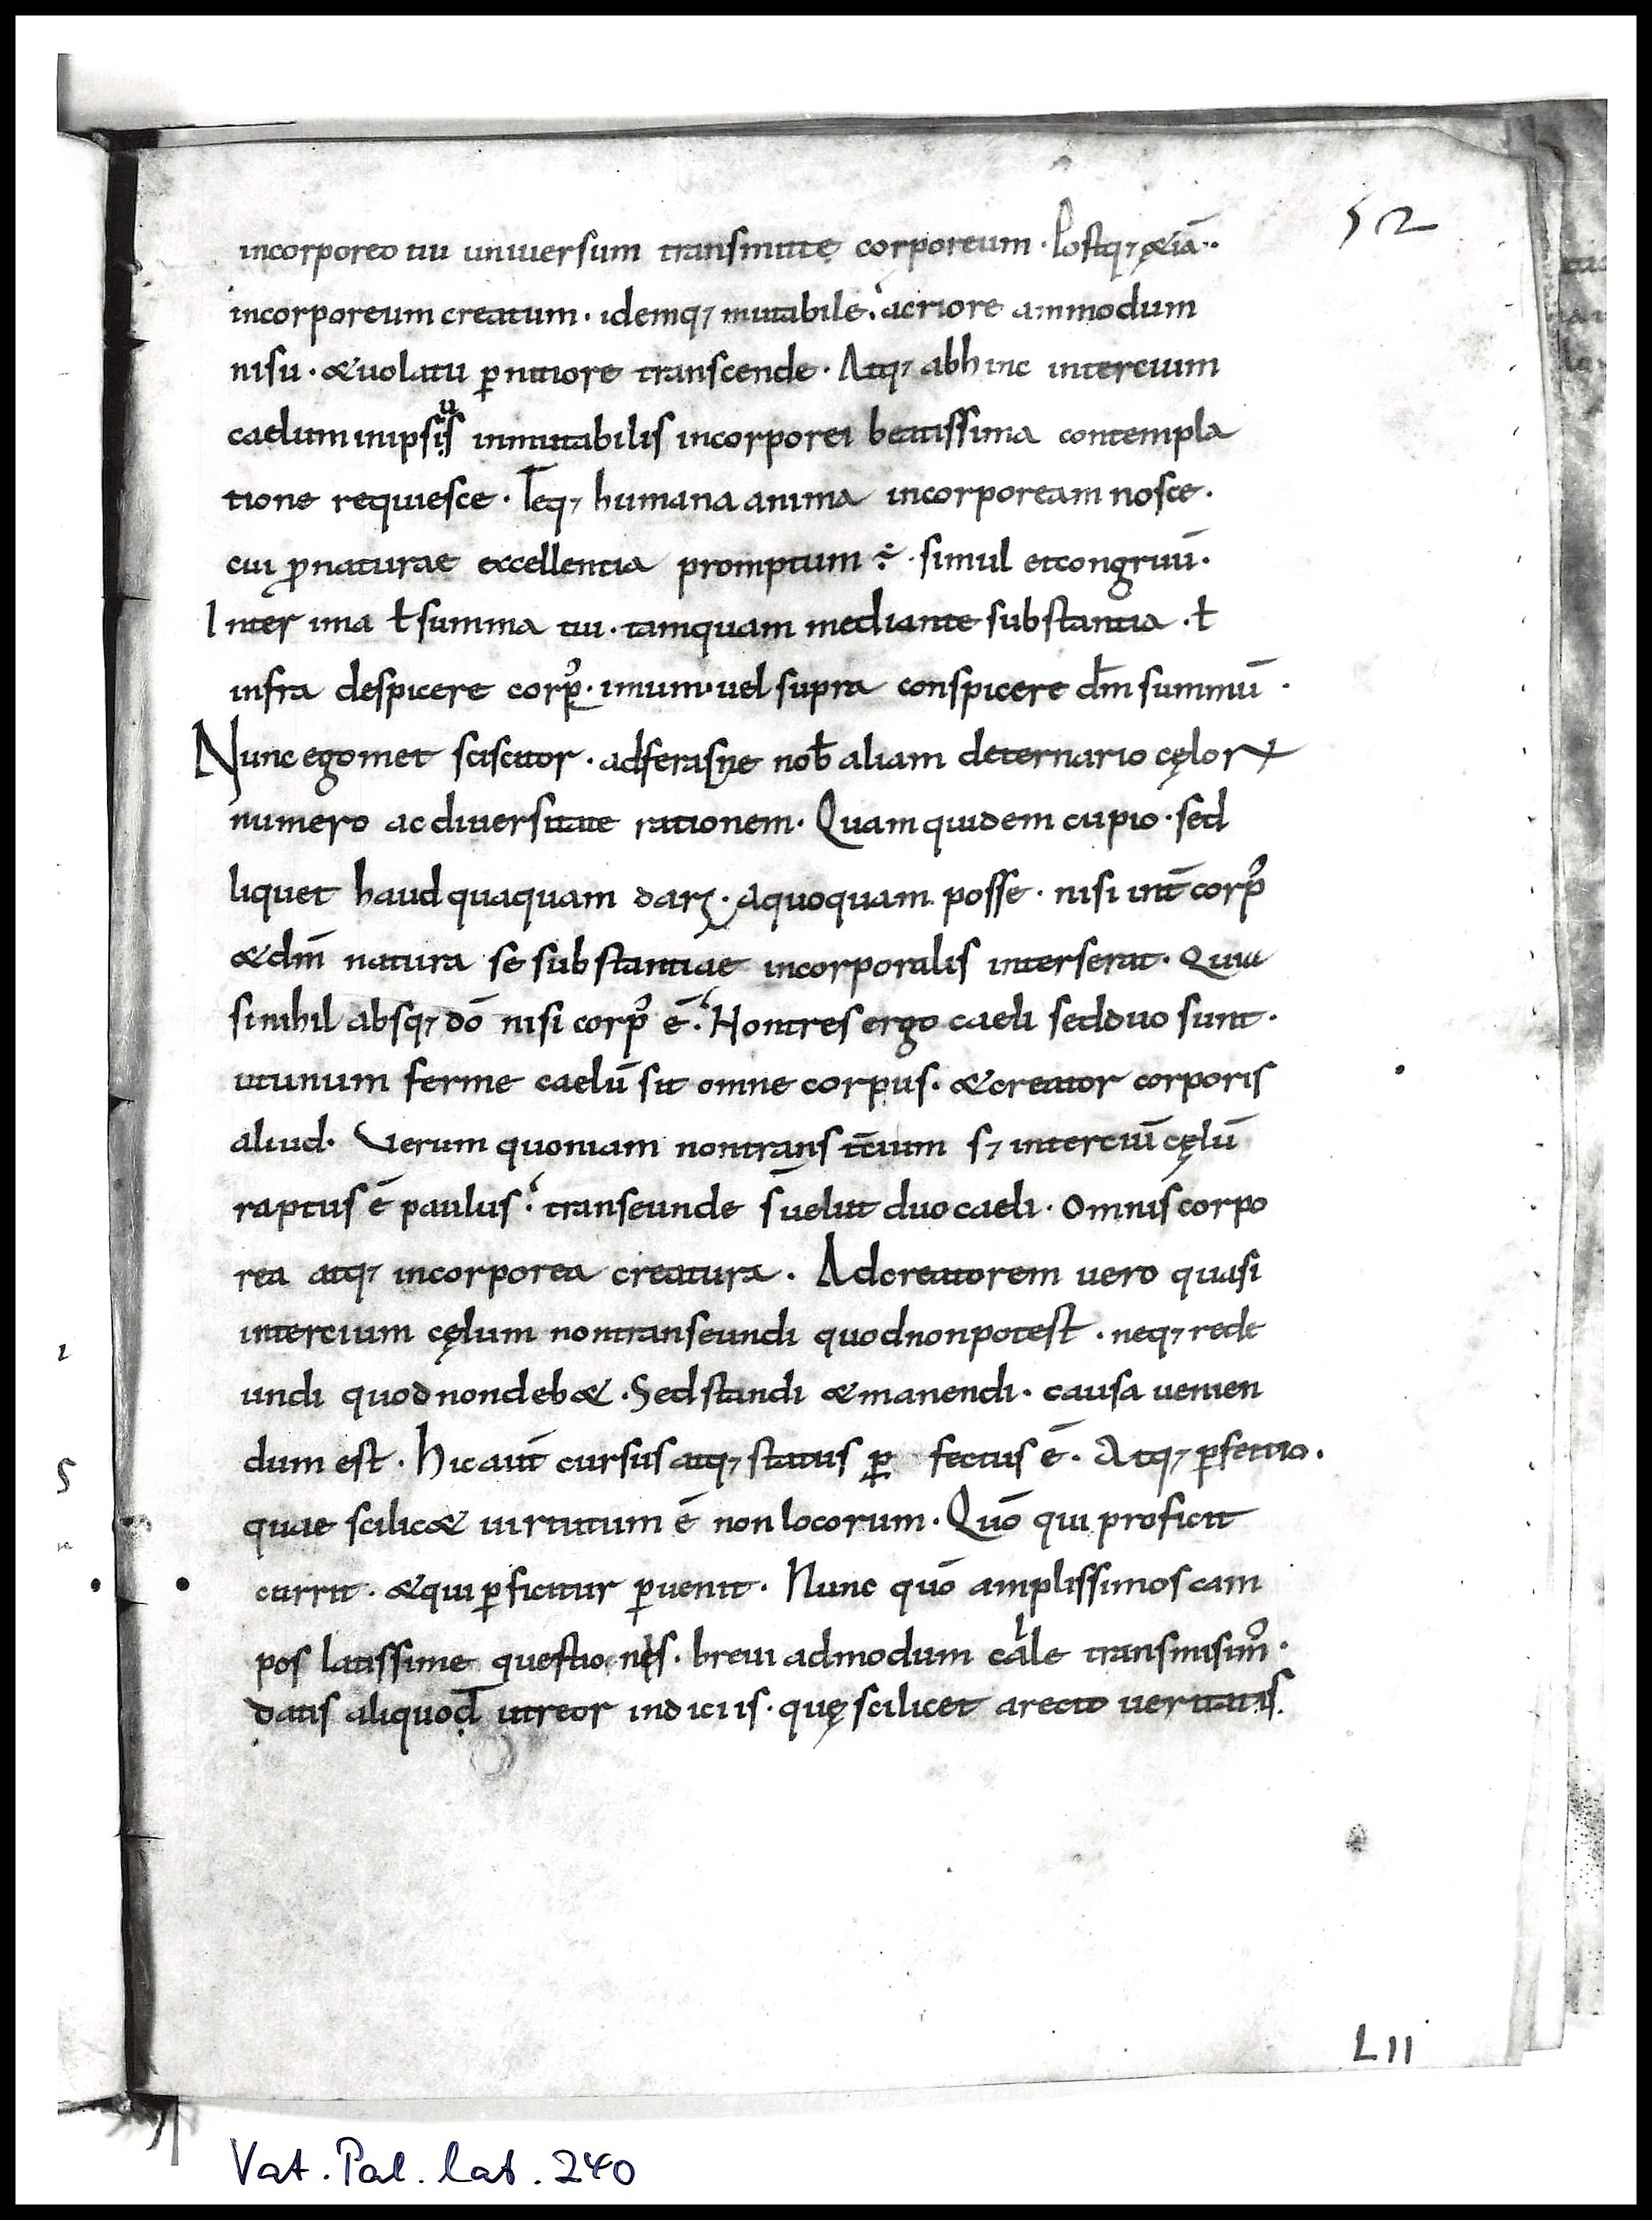 52
incorporeo tui uniuersum transmitte corporeum · Postq; & iā ·
incorporeum creatum · idemq; mutabile · acriore ammodum
nisu · & uolatu ꝑnitiore transcende · Atq; abhinc intercium
caelum inipsiꝰs inmutabilis incorporei beatissima contempla
tione requiesce · Teq; humana anima incorpoream nosce ·
cui ꝓnaturae excellentia promptum ÷ · simul etcongruū ·
Inter ima ł summa tui · tamquam mediante substantia · ł
infra despicere corpꝰ · imum · uel supra conspicere dm̄ summū ·
Nunc egomet sciscitor · adferasne nob̄ aliam deternario cęloꝝ
numero ac diuersitate rationem · Quam quidem cupio · sed
liquet haudquaquam dari · aquoquam posse · nisi int̄ corpꝰ
& dm̄ natura se substantiae incorporalis interserat · Quia
si nihil absq; dō nisi corpꝰ ē · Hontres ergo caeli sedduo sunt ·
utunum ferme caelū sit omne corpus · & creator corporis
aliud · Verum quoniam nontrans tc̄ium s; interciū cęlū
raptus ē paulus · transeunde s̄ uelut duo caeli · Omnis corpo
rea atq; incorporea creatura · Adcreatorem uero quasi
intercium cęlum nontranseundi quodnonpotest · neq; rede
undi quod nondeb& · Sedstandi & manendi · causa uenien
dum est · Hicaut̄ cursus atq; status ꝑ fectus ē · Atq; ꝑfectio ·
quae scilic& uirtutum ē non locorum · Quō qui proficit
currit · & qui ꝑficitur ꝑuenit · Nunc quō amplissimos cam
pos latissime questiones · breui admodum calle transmisimꝰ ·
datis aliquod utreor indiciis · quę scilicet arecto ueritatis
LII
Vat. Pal. lat. 240